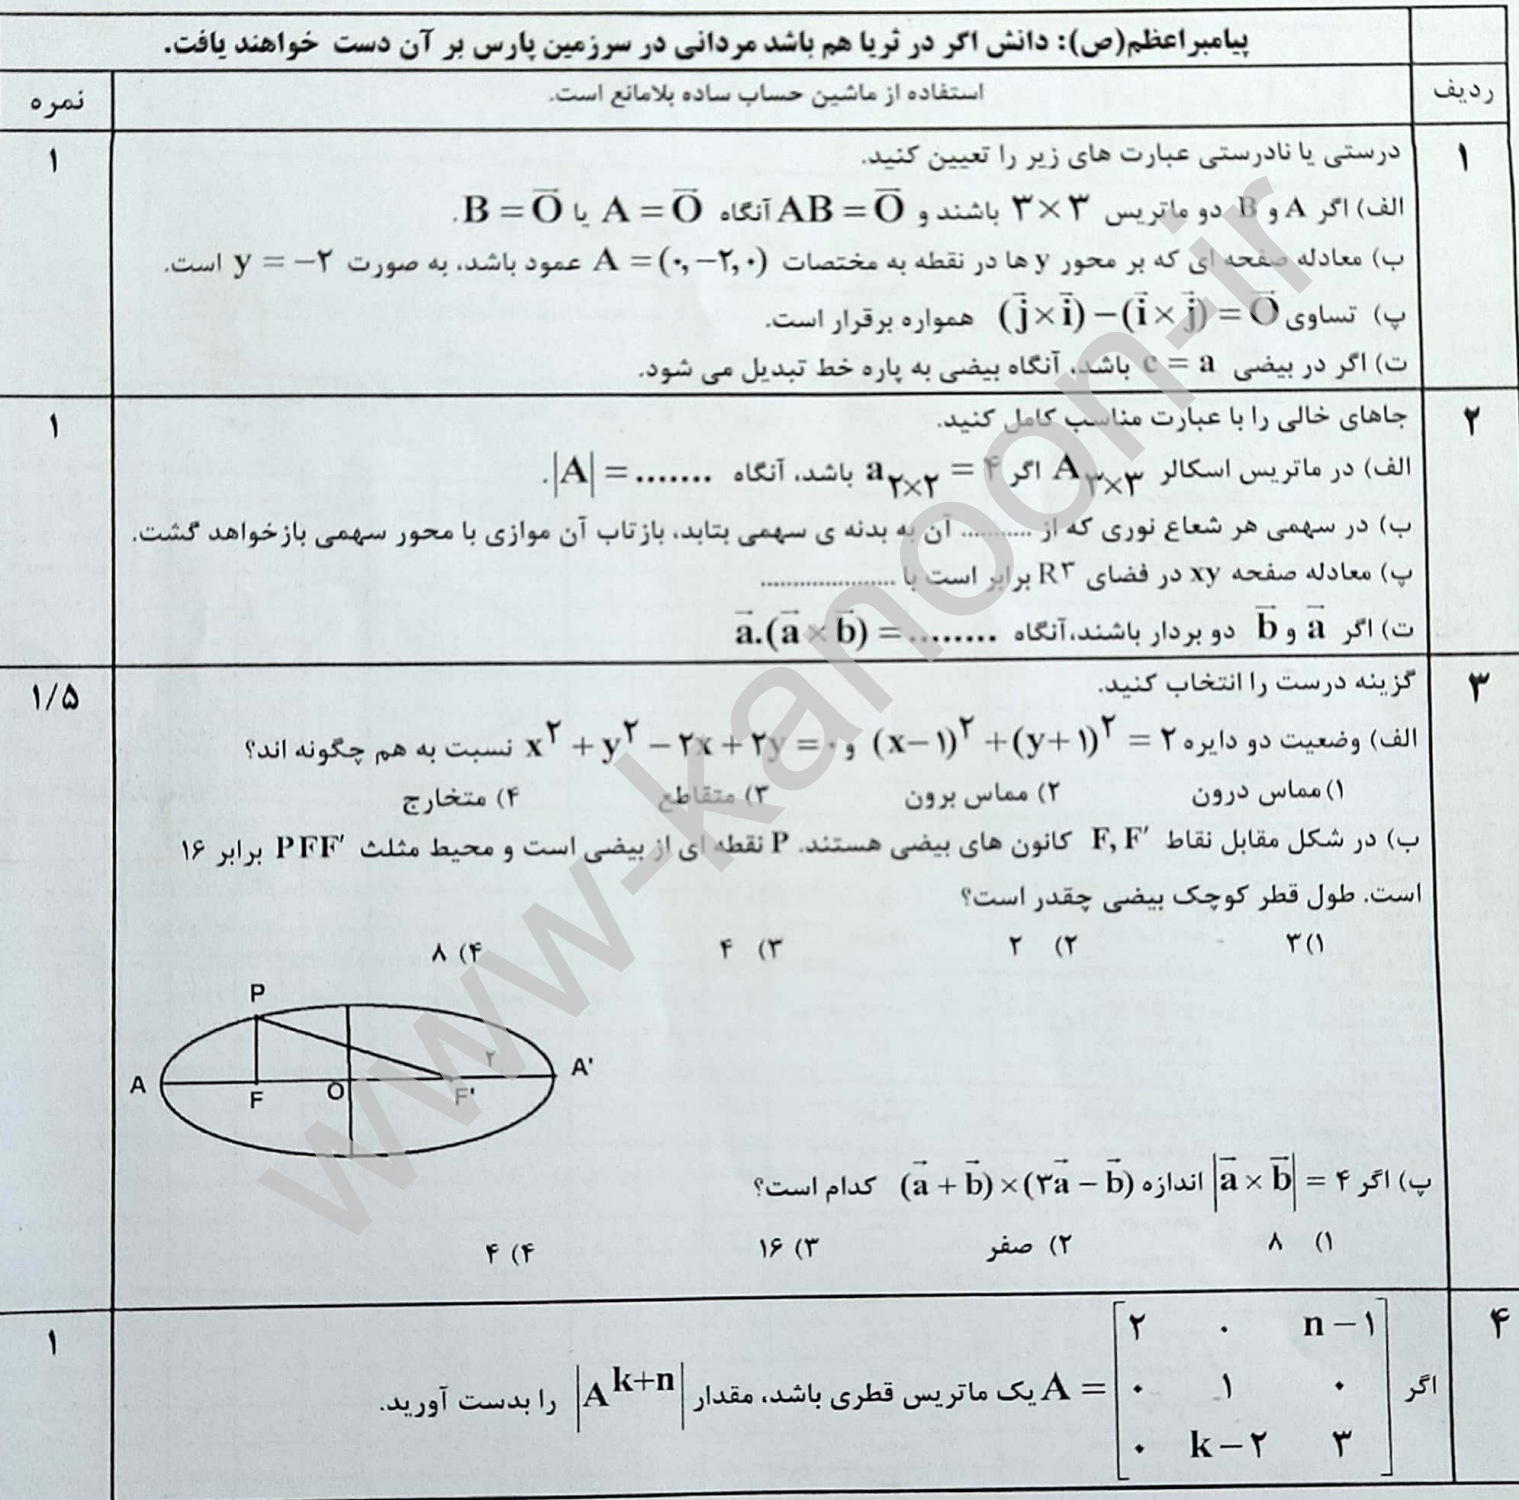 پیامبراعظم(ص): دانش اگر در ثریا هم باشد مردانی در سرزمین پارس بر آن دست خواهند یافت.
ردیف استفاده از ماشین حساب ساده بلامانع است. نمره
۱ درستی یا نادرستی عبارت های زیر را تعیین کنید. ۱
الف) اگر A و B دو ماتریس ۳×۳ باشند و AB = O⃗ آنگاه A = O⃗ یا B = O⃗ .
ب) معادله صفحه ای که بر محور y ها در نقطه به مختصات A = (۰,−۲,۰) عمود باشد، به صورت y = −۲ است.
پ) تساوی (j⃗×i⃗) − (i⃗×j⃗) = O⃗ همواره برقرار است.
ت) اگر در بیضی c = a باشد، آنگاه بیضی به پاره خط تبدیل می شود.
۲ جاهای خالی را با عبارت مناسب کامل کنید. ۱
الف) در ماتریس اسکالر A۳×۳ اگر a۲×۲ = ۴ باشد، آنگاه |A| = ....... .
ب) در سهمی هر شعاع نوری که از ........... آن به بدنه ی سهمی بتابد، بازتاب آن موازی با محور سهمی بازخواهد گشت.
پ) معادله صفحه xy در فضای R۳ برابر است با .....................
ت) اگر a⃗ و b⃗ دو بردار باشند،آنگاه a⃗.(a⃗ × b⃗) = ........
۳ گزینه درست را انتخاب کنید. ۱/۵
الف) وضعیت دو دایره (x−۱)² + (y+۱)² = ۲ و x² + y² − ۲x + ۲y = ۰ نسبت به هم چگونه اند؟
۱) مماس درون ۲) مماس برون ۳) متقاطع ۴) متخارج
ب) در شکل مقابل نقاط F, F′ کانون های بیضی هستند. P نقطه ای از بیضی است و محیط مثلث PFF′ برابر ۱۶
است. طول قطر کوچک بیضی چقدر است؟
۱) ۳ ۲) ۲ ۳) ۴ ۴) ۸
P
A F O F' ۲ A'
پ) اگر |a⃗ × b⃗| = ۴ اندازه (a⃗ + b⃗)×(۳a⃗ − b⃗) کدام است؟
۱) ۸ ۲) صفر ۳) ۱۶ ۴) ۴
۴ اگر A = [۲ ۰ n−۱ ۱
۰ ۱ ۰
۰ k−۲ ۳] یک ماتریس قطری باشد، مقدار |A^k+n| را بدست آورید.
www-kanoon-ir